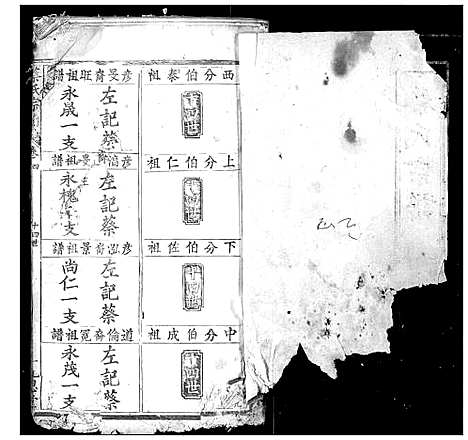 西分伯泰祖
十四世
上分伯仁祖
十四世
下分伯佐祖
十四世
中分伯成祖
十四世
彥旻齊旺祖譜
左記蔡
永晟一支
彥滔齊旻祖譜
左記蔡
永槐等支
彥泓齊景祖譜
左記蔡
尚仁一支
道倫齊冕祖譜
左記蔡
永茂一支
卷四
十四世